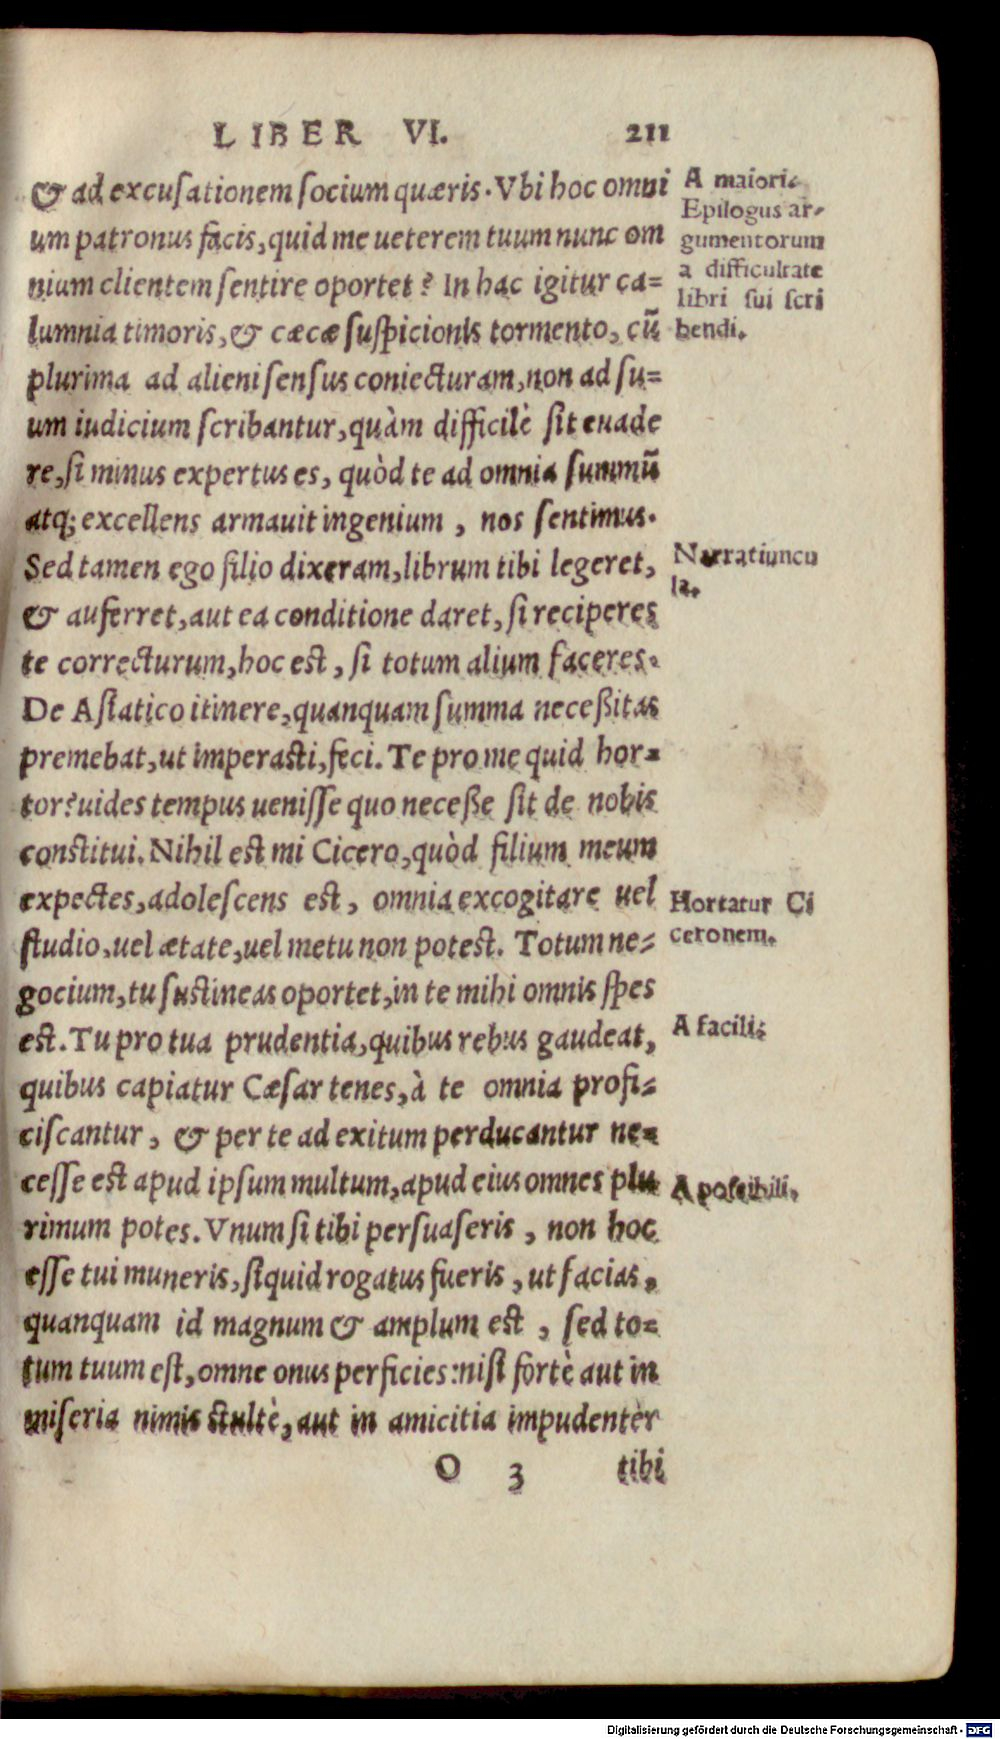 LIBER VI. 211
& ad excusationem socium quæris. Vbi hoc omni
um patronus facis, quid me ueterem tuum nunc om
nium clientem sentire oportet? In hac igitur ca=
lumnia timoris, & cæcæ suspicionis tormento, cū
plurima ad alieni sensus coniecturam, non ad su=
um iudicium scribantur, quàm difficilè sit euade
re, si minus expertus es, quòd te ad omnia summū
atq; excellens armauit ingenium, nos sentimus.
Sed tamen ego filio dixeram, librum tibi legeret,
& auferret, aut ea conditione daret, si reciperes
te correcturum, hoc est, si totum alium faceres.
De Asiatico itinere, quanquam summa neceßitas
premebat, ut imperasti, feci. Te pro me quid hor=
tor? uides tempus uenisse quo neceße sit de nobis
constitui. Nihil est mi Cicero, quòd filium meum
expectes, adolescens est, omnia excogitare uel
studio, uel ætate, uel metu non potest. Totum ne=
gocium, tu sustineas oportet, in te mihi omnis spes
est. Tu pro tua prudentia, quibus rebus gaudeat,
quibus capiatur Cæsar tenes, à te omnia profi=
ciscantur, & per te ad exitum perducantur ne=
cesse est apud ipsum multum, apud eius omnes plu
rimum potes. Vnum si tibi persuaseris, non hoc
esse tui muneris, siquid rogatus fueris, ut facias,
quanquam id magnum & amplum est, sed to=
tum tuum est, omne onus perficies: nisi fortè aut in
miseria nimis stultè, aut in amicitia impudenter
O 3 tibi
A maiori.
Epilogus ar-
gumentorum
a difficultate
libri sui scri
bendi.
Narratiuncu
la.
Hortatur Ci
ceronem.
A facili.
A possibili.
Digitalisierung gefördert durch die Deutsche Forschungsgemeinschaft - DFG